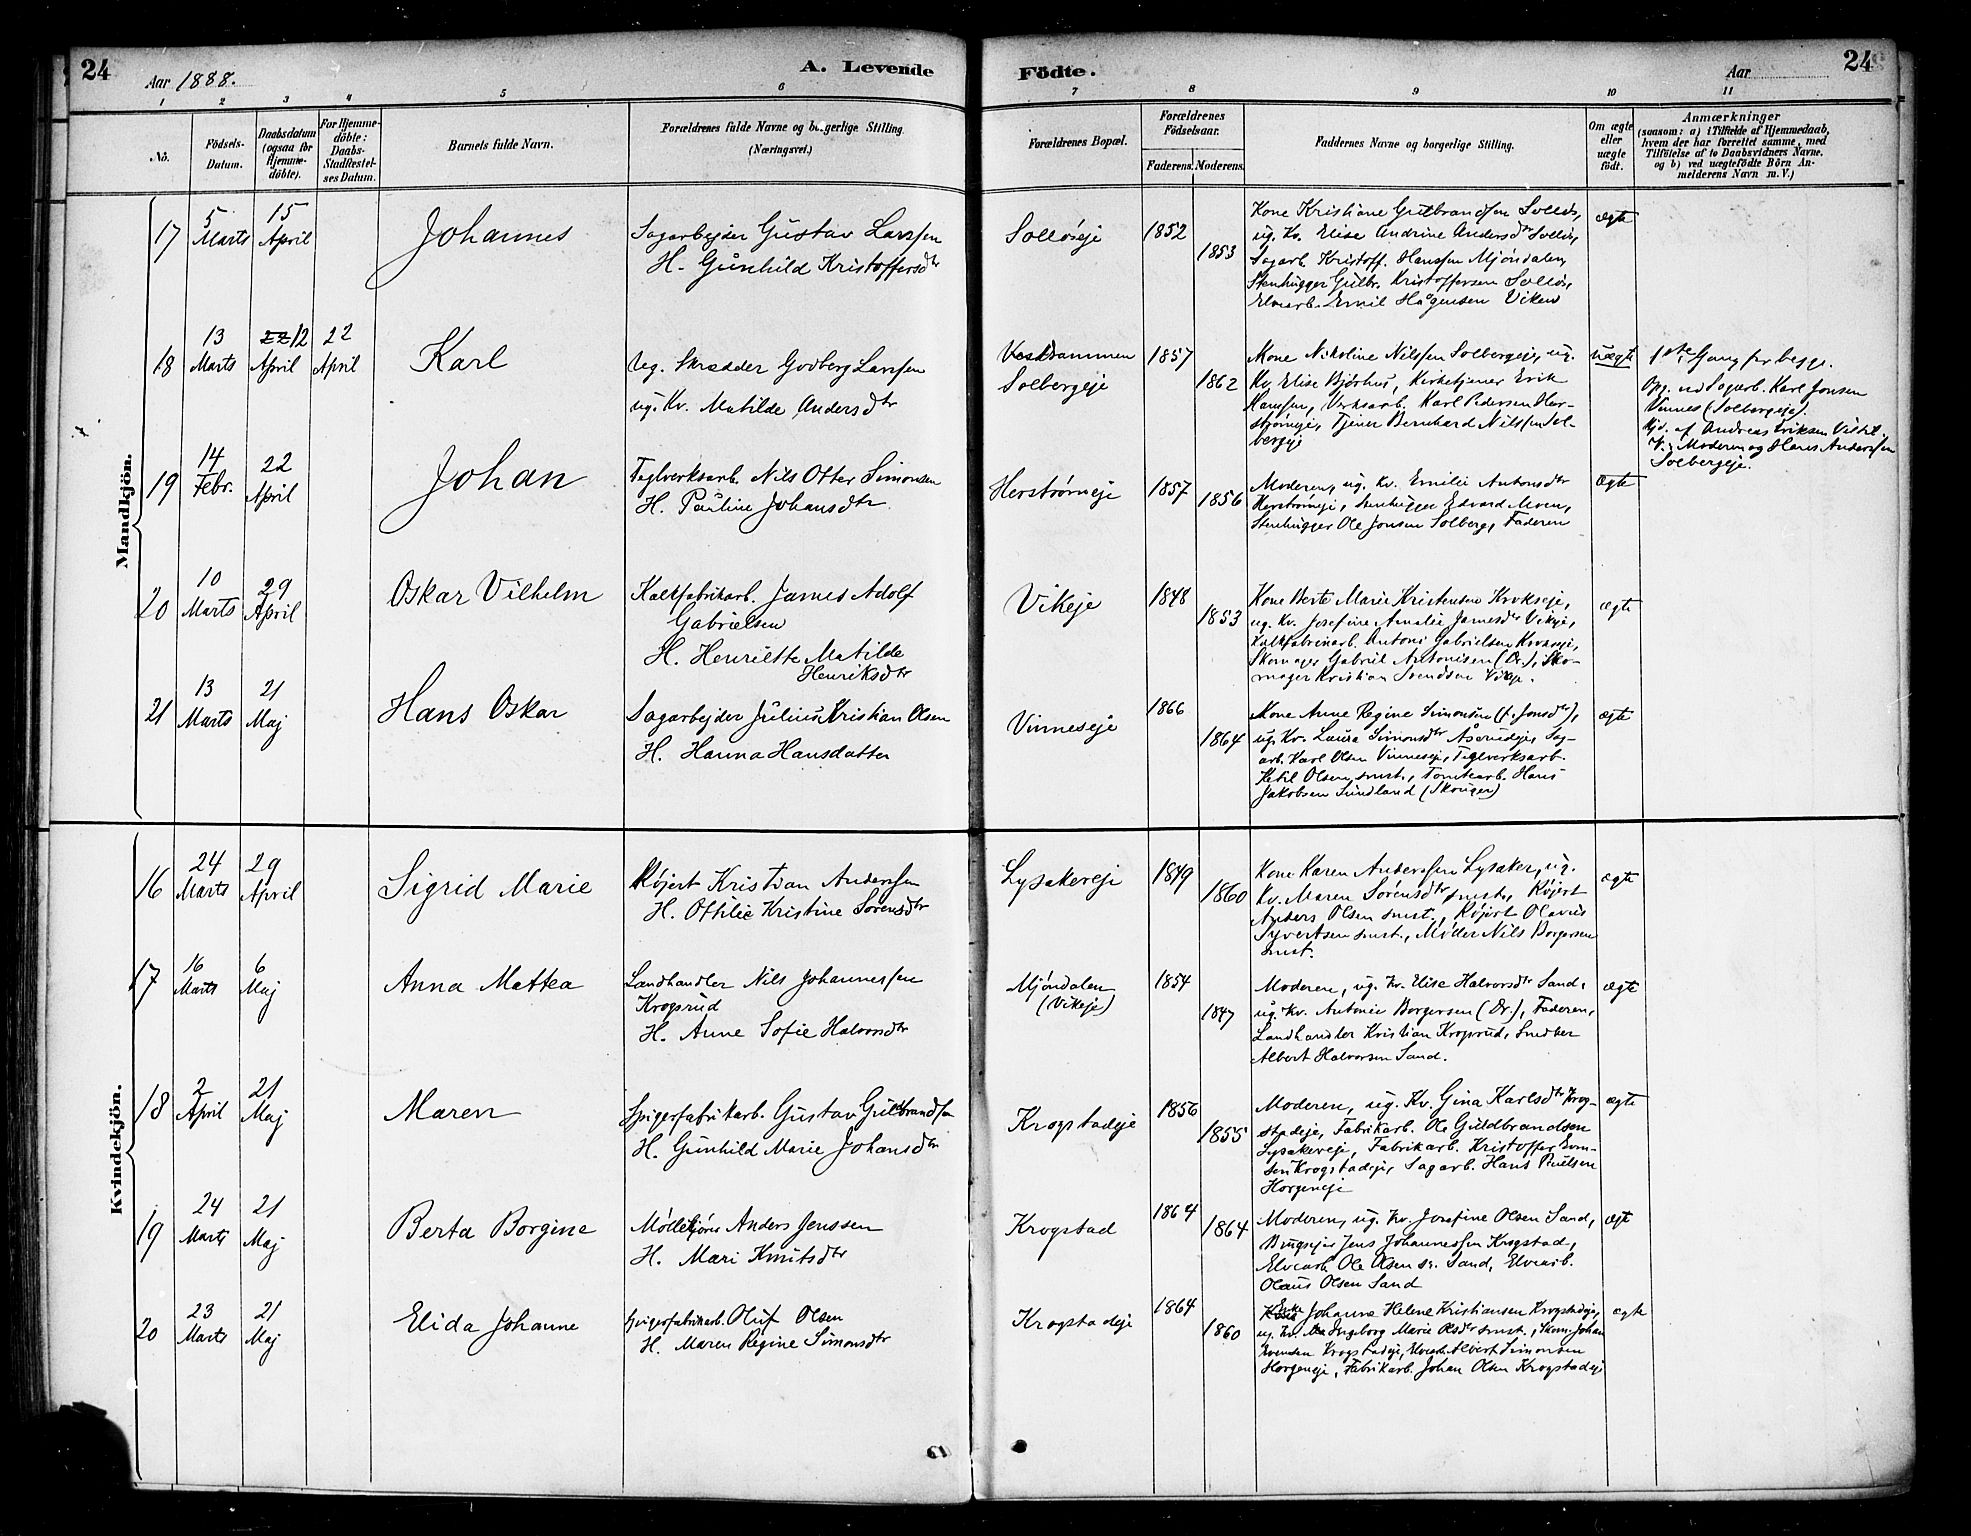 24
Aar 1888.
A. Levende
Födte.
Aar
24
1 2 3 4 5 6 7 8 9 10 11
No.
Födsels-
Datum.
Daabsdatum
(ogsaa for
Hjemme-
döbte).
For Hjemme-
döbte:
Daabs-
Stadfæstel-
ses Datum.
Barnets fulde Navn.
Forældrenes fulde Navne og borgerlige Stilling.
(Næringsvei.)
Forældrenes Bopæl.
Forældrenes
Födselsaar.
Faderens. Moderens.
Faddernes Navne og borgerlige Stilling.
Om ægte
eller
uægte
födt.
Anmærkninger
(saasom: a) i Tilfælde af Hjemmedaab,
hvem der har forrettet samme, med
Tilföielse af to Daabsvidners Navne.
og b) ved uægtefödte Börn An-
melderens Navn m. V.)
Mandkjön.
17
5
Marts
15
April
Johannes
Sagarbejder Gustav Larssen
H. Gunhild Kristoffersdtr
Solløseje
1852
1853
Kone Kristiane Gulbrandsen Solløs,
ug. Kv. Elise Andrine Andersdtr Solløs,
Sagarb. Kristoff. Hanssen Mjöndalen,
Stenhugger Gulbr. Kristoffersen Solløs,
Elvearb. Emil Hågensen Viken
ægte
18
13
Marts
22 12
April
22
April
Karl
Ug. Skrædder Godberg Larssen
ug. Kv. Matilde Andersdtr
Vestdrammen
Solbergeje
1857
1862
Kone Nikoline Nilssen Solbergeje, ug.
Kv. Elise Bjørhus, Kirketjener Erik
Hanssen, Verksarb. Karl Pedersen Her-
strømeje, Tjener Bernhard Nilssen Sol-
bergeje
uægte
1ste Gang for begge.
Opg. ved Sagarb. Karl Jonsen
Vinnes (Solbergeje).
Hjd. af Andreas Eriksen
V.: Moderen og Hans Anderssen
Solbergeje.
19
14
Febr.
22
April
Johan
Teglverksarb. Nils Otter Simonsen
H. Pauline Johansdtr
Herstrømeje
1857
1856
Moderen, ug. Kv. Emilie Antonsdtr
Herstrømeje, Stenhugger Edvard Moen,
Stenhugger Ole Jonsen Solberg, Faderen
Ægte
20
10
Marts
29
April
Oskar Vilhelm
Kalkfabrikarb. James Adolf
Gabrielsen
H. Henriette Matilde
Henriksdtr
Vikeje
1848
1853
Kone Berte Marie Kristensen Krokseje,
ug. Kv. Josefine Amalie Jamesdtr Vikeje,
Kalkfabrikarb. Antoni Gabrielsen Krokseje,
Skomager Gabriel Antonisen (Dr.), Sko-
mager Kristian Svendsen Vikeje.
ægte
21
13
Marts
21
Maj
Hans Oskar
Sagarbejder Julius Kristian Olsen
H. Hanna Hansdatter
Vinneseje
1866
1864
Kone Anne Regine Simonsen (f. Jonsdtr),
ug. Kv. Laura Simonsdtr Åserudeje, Sag-
arb. Karl Olsen Vinneseje, Teglverksarb.
Ketil Olsen smst., Tomtearb. Hans
Jakobsen Sundland (Skouger)
ægte
Kvindekjön.
16
24
Marts
29
April
Sigrid Marie
Røjert Kristian Anderssen
H. Othilie Kristine Sørensdtr
Lysakereje
1849
1860
Kone Karen Anderssen Lysaker, ug.
Kv. Maren Sørensdtr smst., Røjert
Anders Olsen smst., Røjert Olavus
Syvertsen smst., Møller Nils Borgersen
smst.
ægte
17
16
Marts
6
Maj
Anna Mathea
Landhandler Nils Johannessen
Krogsrud
H. Anne Sofie Halvorsdtr
Mjöndalen
(Vikeje)
1854
1847
Moderen, ug. Kv. Elise Halvorsdtr Sand,
ug. Kv. Antonie Borgersen (Dr.), Faderen,
Landhandler Kristian Krogsrud, Snedker
Albert Halvorsen Sand.
ægte
18
2
April
21
Maj
Maren
Spigerfabrikarb. Gustav Guldbrandsen
H. Gunhild Marie Johansdtr
Krogstadeje
1856
1855
Moderen, ug. Kv. Gina Karlsdtr Krog-
stadeje, Fabrikarb. Ole Guldbrandsen
Lysakereje, Fabrikarb. Kristoffer Even-
sen Krogstadeje, Sagarb. Hans Paulsen
Horgeneje
ægte
19
24
Marts
21
Maj
Berta Borgine
Mølle Anders Jenssen
H. Mari Knutsdtr
Krogstad
1864
1864
Moderen, ug. Kv. Josefine Olsen Sand,
Brugsejer Jens Johannessen Krogstad,
Elvearb. Ole Olsen sr. Sand, Elvearb.
Olaus Olsen Sand
ægte
20
23
Marts
21
Maj
Elida Johanne
Spigerfabrikarb. Oluf Olsen
H. Maren Regine Simonsdtr
Krogstadeje
1864
1860
Enke Johanne Helene Kristiansen Krogstadeje,
ug. Kv. Ingeborg Marie Olsdtr smst., Skom. Johan
Evensen Krogstadeje, Elvearb. Albert Simonsen
Horgeneje, Fabrikarb. Johan Olsen Krogstadeje
ægte